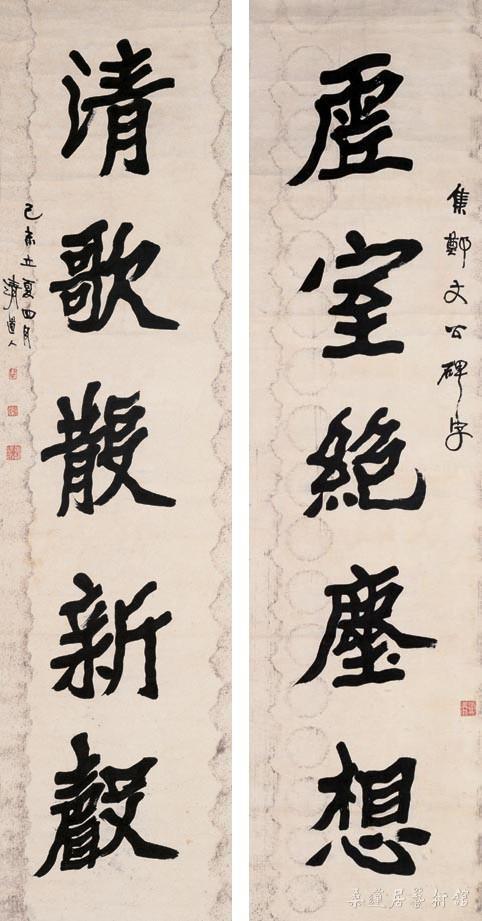 集鄭文公碑字
虛室絕塵想
清歌散新聲
己未立夏四月
清道人
桑蓮居藝術館